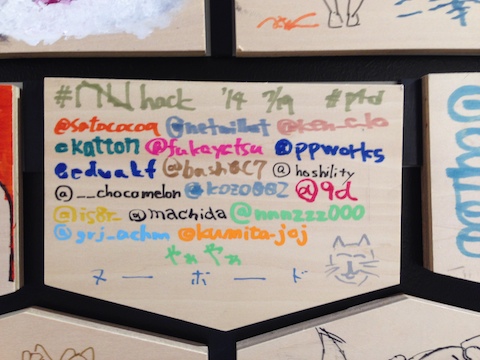 hack '14 7/19
@satococoa @netwillnet @ken_c_lo
@katton @fukayatsu @ppworks
@bash0C7 @hoshility
@__chocomelon @kozo002 @9d
@is8r @machida @nnnzzz000
@kumita-joj
やわやわ
ヌーボード